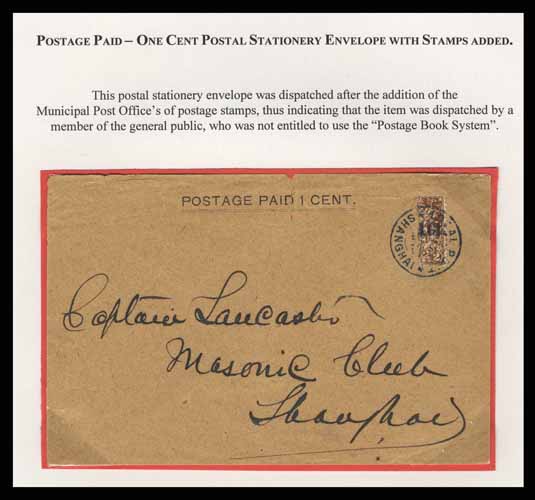 POSTAGE PAID – ONE CENT POSTAL STATIONERY ENVELOPE WITH STAMPS ADDED.
This postal stationery envelope was dispatched after the addition of the
Municipal Post Office's of postage stamps, thus indicating that the item was dispatched by a
member of the general public, who was not entitled to use the "Postage Book System".
POSTAGE PAID 1 CENT.
SHANGHAI
Captain Lancaster
Masonic Club
Shanghai